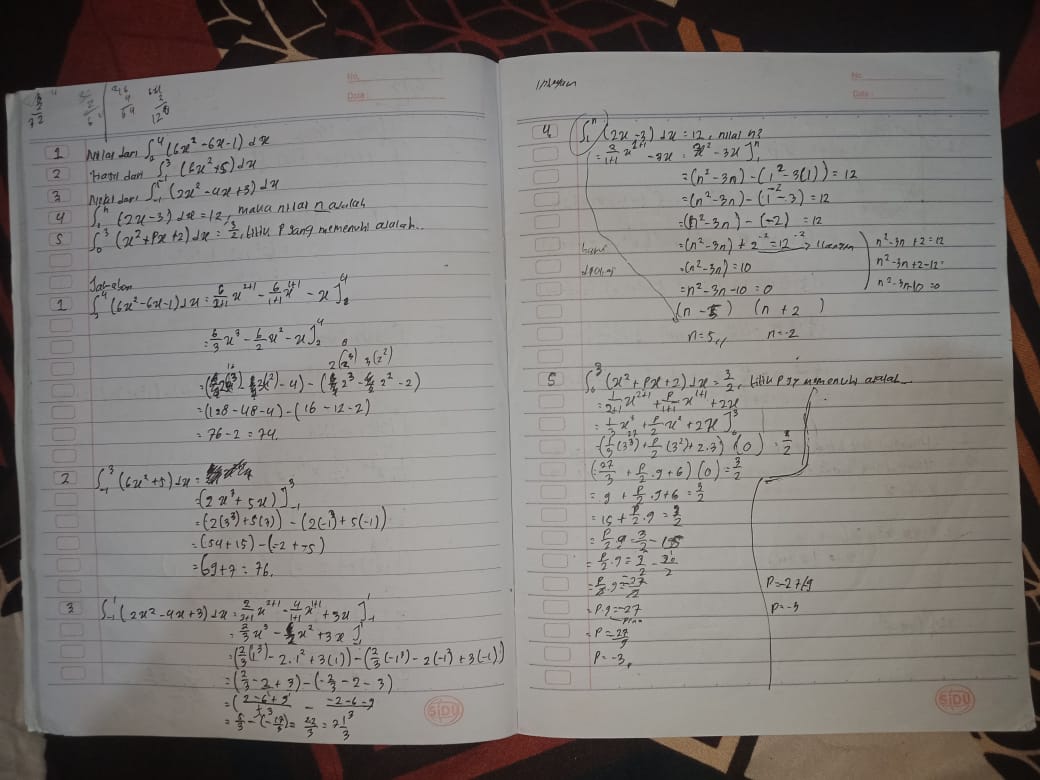 1 Nilai dari ∫₂⁴ (6x² -6x-1) dx
2 Hasil dari ∫₋₁³ (6x²+5) dx
3 Nilai dari ∫₋₁¹ (2x² -4x+3) dx
4 ∫₁ⁿ (2x-3) dx = 12, maka nilai n adalah
5 ∫₀³ (x²+Px+2) dx = 3/2, nilai P yang memenuhi adalah..
Jawaban
1 ∫₂⁴ (6x²-6x-1) dx = 6/2+1 x²⁺¹ - 6/1+1 x¹⁺¹ - x]₂⁴
= 6/3 x³ - 6/2 x² - x]₂⁴
= (128-48-4) - (16-12-2)
= 76-2 = 74.
2 ∫₋₁³ (6x²+5) dx =
= (2x³+5x)]₋₁³
= (2(3³)+5(3)) - (2(-1³)+5(-1))
= (54+15) - (-2+-5)
= 69+7 = 76.
3 ∫₋₁¹ (2x²-4x+3) dx = 2/2+1 x²⁺¹ - 4/1+1 x¹⁺¹ + 3x]₋₁¹
= 2/3 x³ - 2x² + 3x]₋₁¹
= (2/3(1³) - 2.1² + 3(1)) - (2/3(-1³) - 2(-1²) + 3(-1))
= (2/3 - 2 + 3) - (-2/3 - 2 - 3)
= (2-6+9/3 - -2-6-9/3
= 5/3 - (-17/3) = 22/3 = 7 1/3
SIDU
No.
Date :
Integran
No.
Date :
4 ∫₁ⁿ (2x-3) dx = 12, nilai n?
= 2/1+1 x¹⁺¹ - 3x = x² - 3x]₁ⁿ
= (n²-3n) - (1²-3(1)) = 12
= (n²-3n) - (1-3) = 12
= (n²-3n) - (-2) = 12
= (n²-3n) + 2 = 12
= (n²-3n) = 10
= n²-3n-10 = 0
(n - 5) (n + 2)
n=5,, n=-2
n²-3n+2=12
n²-3n+2-12=
n²-3n-10=0
5 ∫₀³ (x²+Px+2) dx = 3/2, nilai P yg memenuhi adalah..
= 1/2+1 x²⁺¹ + P/1+1 x¹⁺¹ + 2x
= 1/3 x³ + P/2 x² + 2x]₀³
(1/3(3³) + P/2(3²) + 2.3) (0) = 3/2
(27/3 + P/2 .9+6) (0) = 3/2
= 9 + P/2 .9+6 = 3/2
= 15 + P/2 .9 = 3/2
= P/2 .9 = 3/2 - 15
= P/2 .9 = 3/2 - 30/2
= P/2 .9 = -27/2
= P.9 = -27
= P = 27/9
P = -3,
P=-27/9
P=-3
SIDU